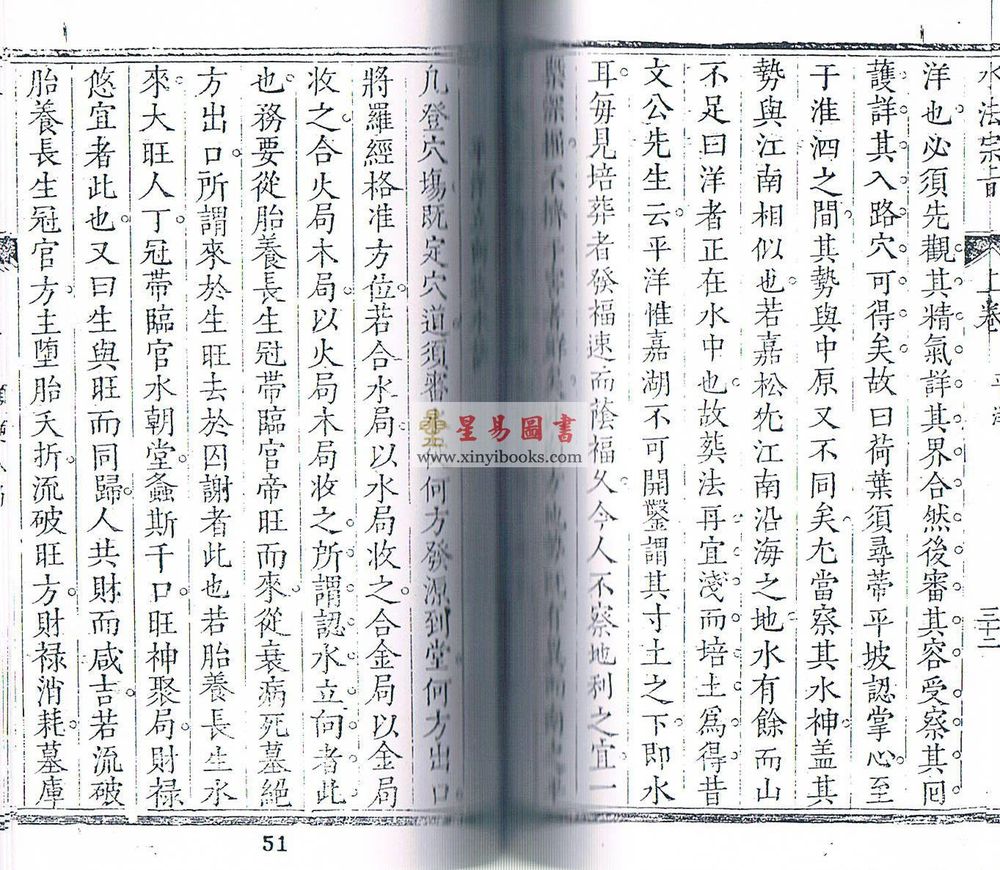 水法宗旨 上卷 三十二
洋也必須先觀其精氣詳其界合然後審其容受察其回
護詳其入路穴可得矣故曰荷葉須尋蒂平坡認掌心至
于淮泗之間其勢與中原又不同矣尤當察其水神蓋其
勢與江南相似也若嘉松犹江南沿海之地水有餘而山
不足曰洋者正在水中也故葬法再宜淺而培土為得昔
文公先生云平洋惟嘉湖不可開鑿謂其寸土之下即水
耳每見培葬者發福速而蔭福久今人不察地利之宜一
凡登穴塲既定穴道須審 何方發源到堂何方出口
將羅經格准方位若合水局以水局收之合金局以金局
收之合火局木局以火局木局收之所謂認水立向者此
也務要從胎養長生冠帶臨官帝旺而來從衰病死墓絕
方出口所謂來於生旺去於囚謝者此也若胎養長生水
來大旺人丁冠帶臨官水朝堂螽斯千口旺神聚局財祿
悠宜者此也又曰生與旺而同歸人共財而咸吉若流破
胎養長生冠官方主墮胎夭折流破旺方財祿消耗墓庫
星易圖書
www.xinyibooks.com
51